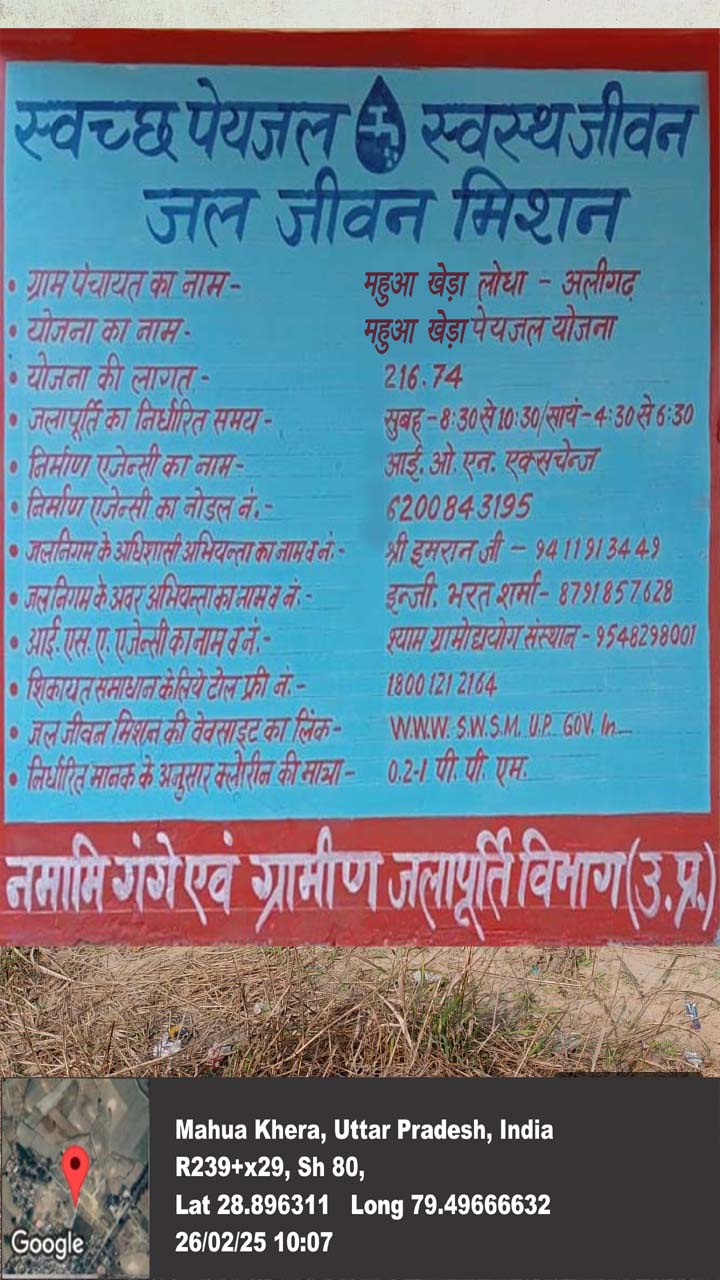 स्वच्छ पेयजल स्वस्थ जीवन
जल जीवन मिशन
• ग्राम पंचायत का नाम - महुआ खेड़ा लोधा - अलीगढ़
• योजना का नाम - महुआ खेड़ा पेयजल योजना
• योजना की लागत - 216.74
• जलापूर्ति का निर्धारित समय - सुबह - 8:30 से 10:30/सायं - 4:30 से 6:30
• निर्माण एजेन्सी का नाम - आई. ओ. एन. एक्सचेन्ज
• निर्माण एजेन्सी का नोडल नं. - 6200843195
• जलनिगम के अधिशासी अभियन्ता का नाम व नं. - श्री इमरान जी - 9411913449
• जलनिगम के अवर अभियन्ता का नाम व नं. - इन्जी. भरत शर्मा - 8791857628
• आई. एस. ए. एजेन्सी का नाम व नं. - श्याम ग्रामोद्ययोग संस्थान - 9548298001
• शिकायत समाधान के लिये टोल फ्री नं. - 1800 121 2164
• जल जीवन मिशन की वेवसाइट का लिंक - W.W.W. S.W.S.M. U.P. GOV. In.
• निर्धारित मानक के अनुसार क्लोरीन की मात्रा - 0.2-1 पी. पी. एम.
नमामि गंगे एवं ग्रामीण जलापूर्ति विभाग (उ.प्र.)
Mahua Khera, Uttar Pradesh, India
R239+x29, Sh 80,
Lat 28.896311 Long 79.49666632
26/02/25 10:07
Google